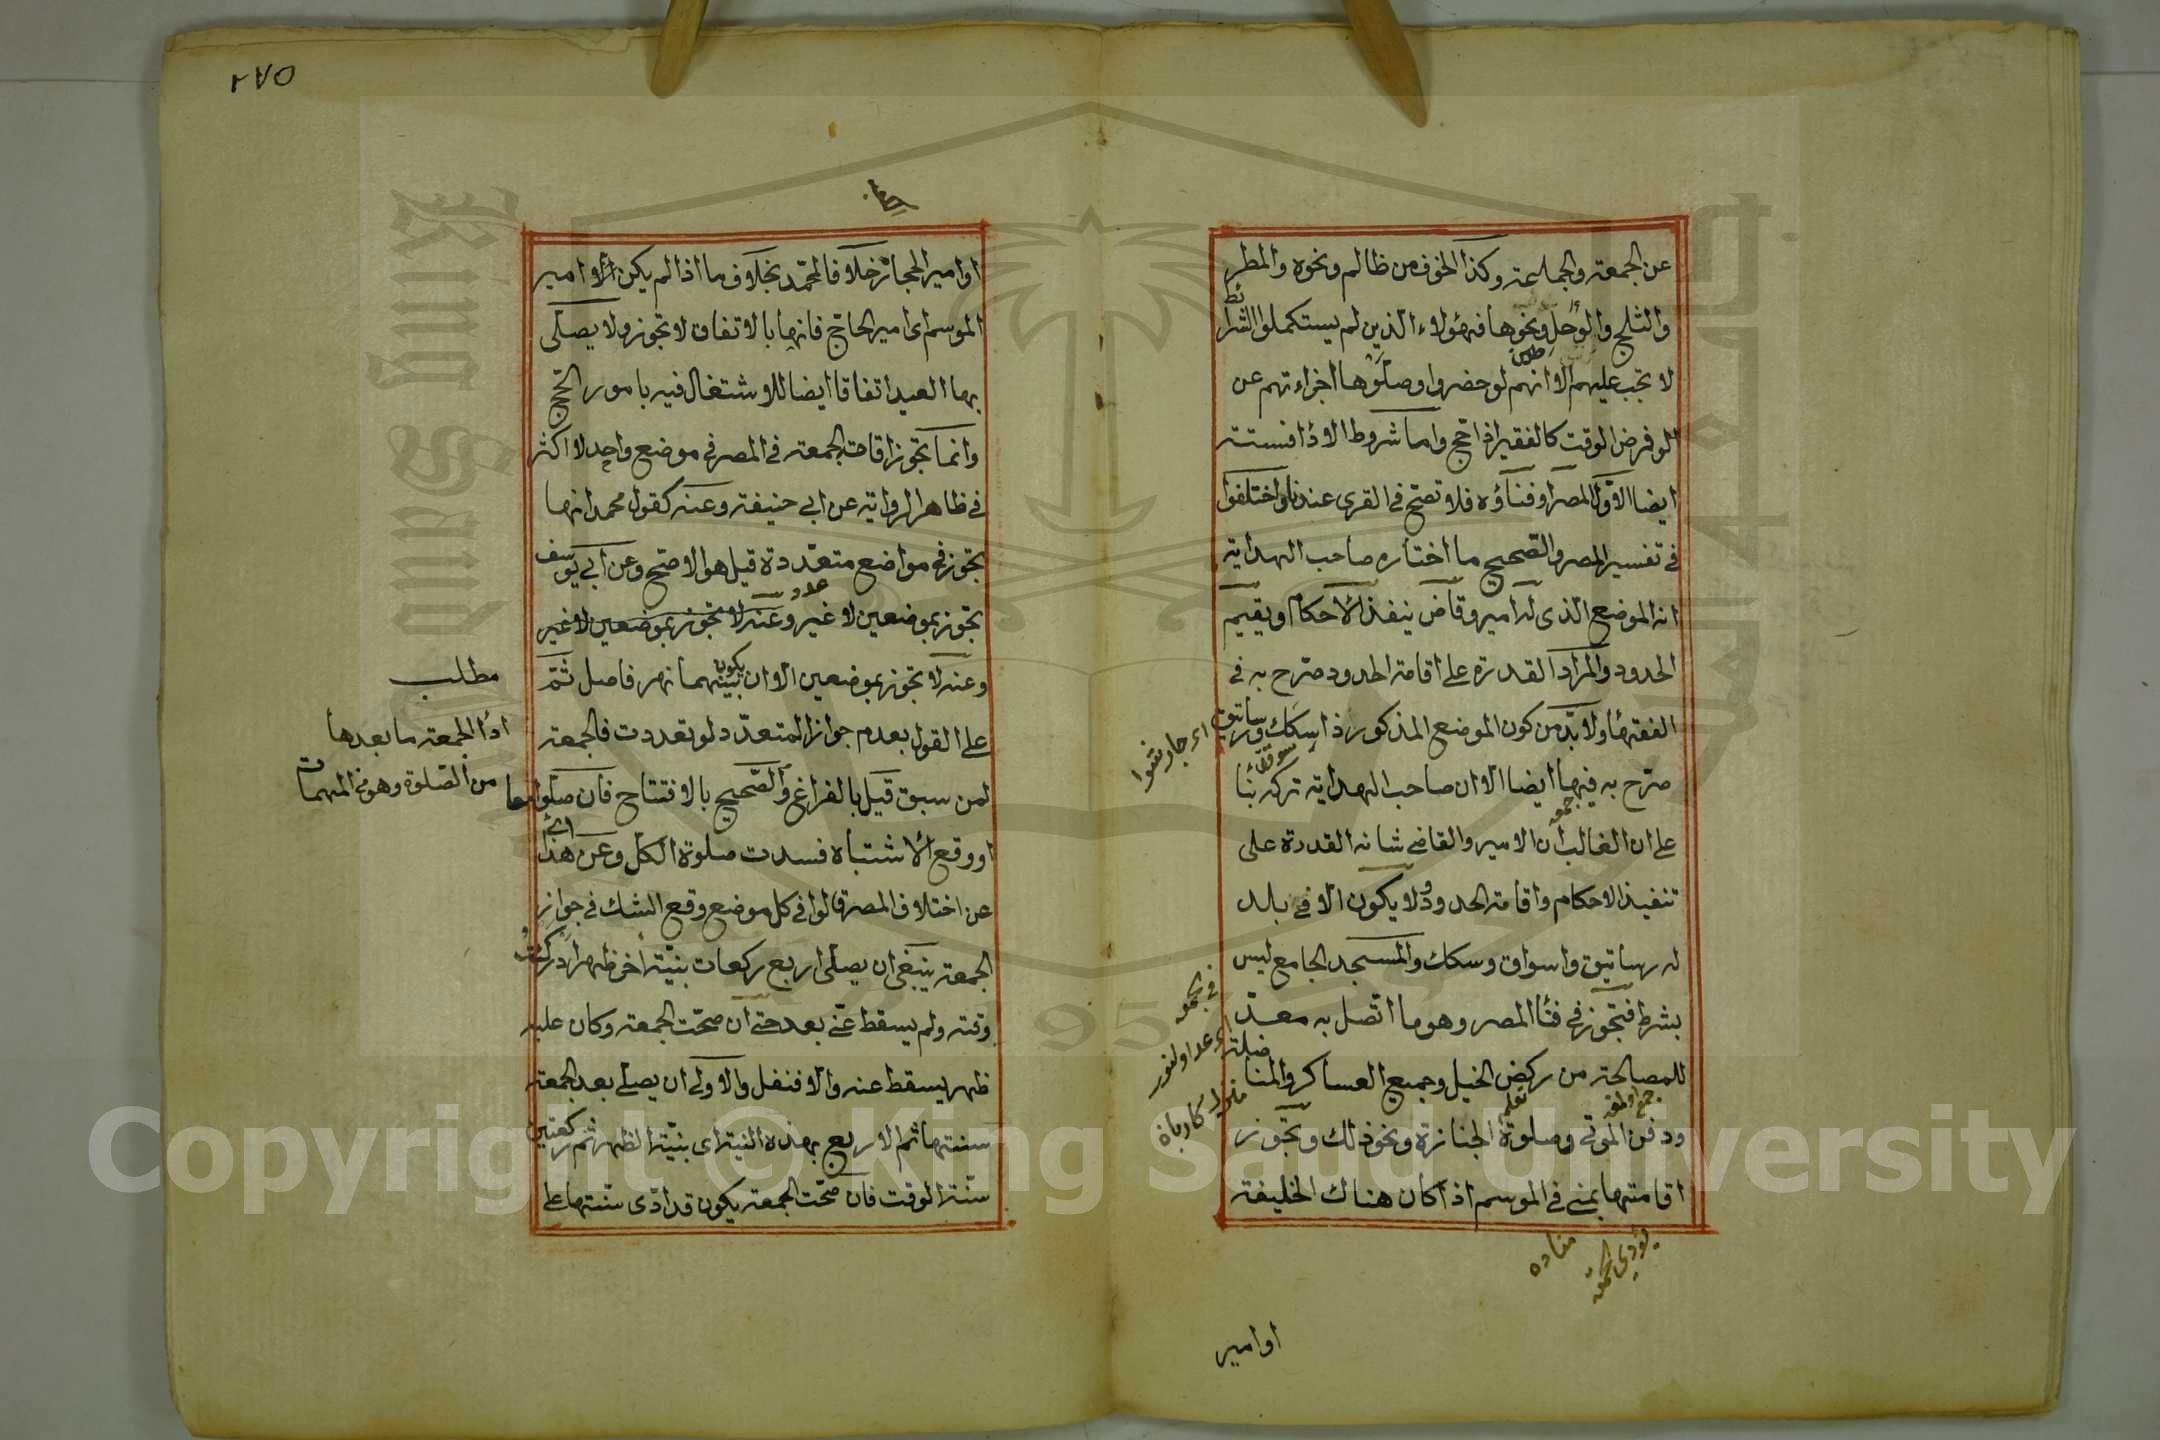 عن الجمعة والجماعة وكذا الخوف من ظالم ونحوه والمطر
والثلج والوحل ونحوها فهؤلاء الذين لم يستكملوا الشرائط
طين
لا تجب عليهم الا انهم لو حضروا وصلوها اجزاءتهم عن
فرض الوقت كالفقير اذا حج واما شروط الاداء فستة
ايضا الاول المصر او فناؤه فلا تصح في القرى عندنا واختلفوا
في تفسير المصر والصحيح ما اختاره صاحب الهداية
انه الموضع الذى له امير وقاض ينفذ الاحكام ويقيم
الحدود والمراد القدرة على اقامة الحدود صرح به في
الفقهاء ولا بد من كون الموضع المذكور ذا سكك ورساتيق
صرح به فيها ايضا الا ان صاحب الهداية تركه بناء
على ان الغالب ان الامير والقاضى شانه القدرة على
تنفيذ الاحكام واقامة الحدود ولا يكون الا في بلد
له رساتيق واسواق وسكك والمسجد الجامع ليس
بشرط فتجوز في فناء المصر وهو ما اتصل به معدّ
للمصالحة من ركض الخيل وجميع العساكر والمناضلة
ودفن الموتى وصلوة الجنازة ونحو ذلك وتجوز
اقامتها بمنى في الموسم اذا كان هناك الخليفة
في الجمعه
يؤدي الجمعه
اوامير
٢٧٥
او امير الحجاز خلافا لمحمد بخلاف ما اذا لم يكن الا امير
الموسم اى امير الحاج فانها بالاتفاق لا تجوز ولا يصلى
بها العيد اتفاقا ايضا للاشتغال فيه بامور الحج
وانما تجوز اقامة الجمعة في المصر في موضع واحد لا اكثر
في ظاهر الرواية عن ابي حنيفة وعنه كقول محمد انها
تجوز في مواضع متعددة قيل هو الاصح وعن ابي يوسف
تجوز بموضعين لا غير وعنه لا تجوز بموضعين لا غير
وعنه لا تجوز بموضعين الا ان يكون بينهما نهر فاصل ثم
على القول بعدم جواز المتعدد لو تعددت فالجمعة
لمن سبق قيل بالفراغ والصحيح بالافتتاح فان صلوا معا
او وقع الاشتباه فسدت صلوة الكل وعن هذا
عن اختلاف المصر قالوا في كل موضع وقع الشك في جواز
الجمعة ينبغى ان يصلى اربع ركعات بنية اخر ظهر ادركت
وقته ولم يسقط عنى بعد حتى ان صحت الجمعة وكان عليه
ظهر يسقط عنه والا فنفل والاولى ان يصلى بعد الجمعة
سنتها ثم الاربع بهذه النية اى بنية الظهر ثم ركعتين
سنة الوقت فان صحت الجمعة يكون قد ادى سنتها على
مطلب
اداء الجمعة ما بعدها
من الصلوة وهو من المهمات
Copyright © King Saud University